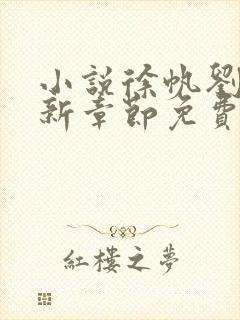 小説徐帆劉
新章節免費
紅樓之夢